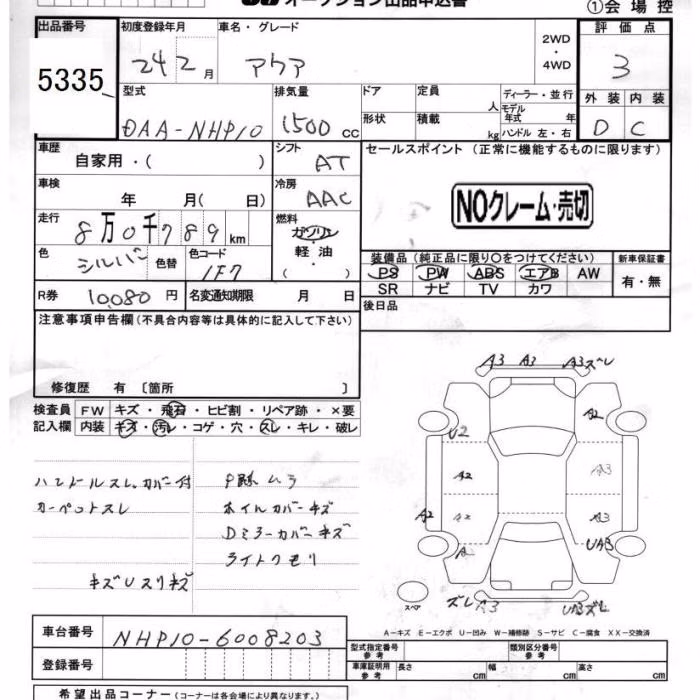 オークション出品申込書
①会場控
出品番号 初度登録年月 車名・グレード 2WD・4WD 評価点
5335 24 2月 アクア 3
型式 排気量 ドア 定員 人 ディーラー・並行 外装 内装
DAA-NHP10 1500cc 形状 積載 kg モデル年式 年 D C
ハンドル 左・右
車歴 自家用・( ) シフト AT セールスポイント (正常に機能するものに限ります)
車検 年 月( 日) 冷房 AAC
NOクレーム・売切
走行 8万0千789km 燃料 ガソリン・軽油・( )
色 シルバー 色替 色コード 1F7
装備品 (純正品に限り○をつけてください) 新車保証書
PS PW ABS エアB AW 有・無
SR ナビ TV カワ
R券 10,080円 名変通知期限 月 日
後日品
注意事項申告欄(不具合内容等は具体的に記入して下さい)
修復歴 有〔箇所 〕
検査員 FW キズ・飛石・ヒビ割・リペア跡・×要
記入欄 内装 キズ・汚レ・コゲ・穴・スレ・キレ・破レ
ハンドルスレ、カバー付
カーペットスレ
キズUスリキズ
ムラ
ホイルカバーキズ
Dミラーカバーキズ
ライトクモリ
A3 A3 A3ズレ
A2
U2
A2 A3
A2 A2 A3
A2 UA3
スペア
ズレA3 UB3ズレ
A-キズ E-エクボ U-凹み W-補修跡 S-サビ C-腐食 XX-交換済
車台番号 NHP10-6008203
型式指定番号 参考 類別区分番号 参考
登録番号
車庫証明用 参考 長さ cm 幅 cm 高さ cm
希望出品コーナー (コーナーは各会場により異なります。)